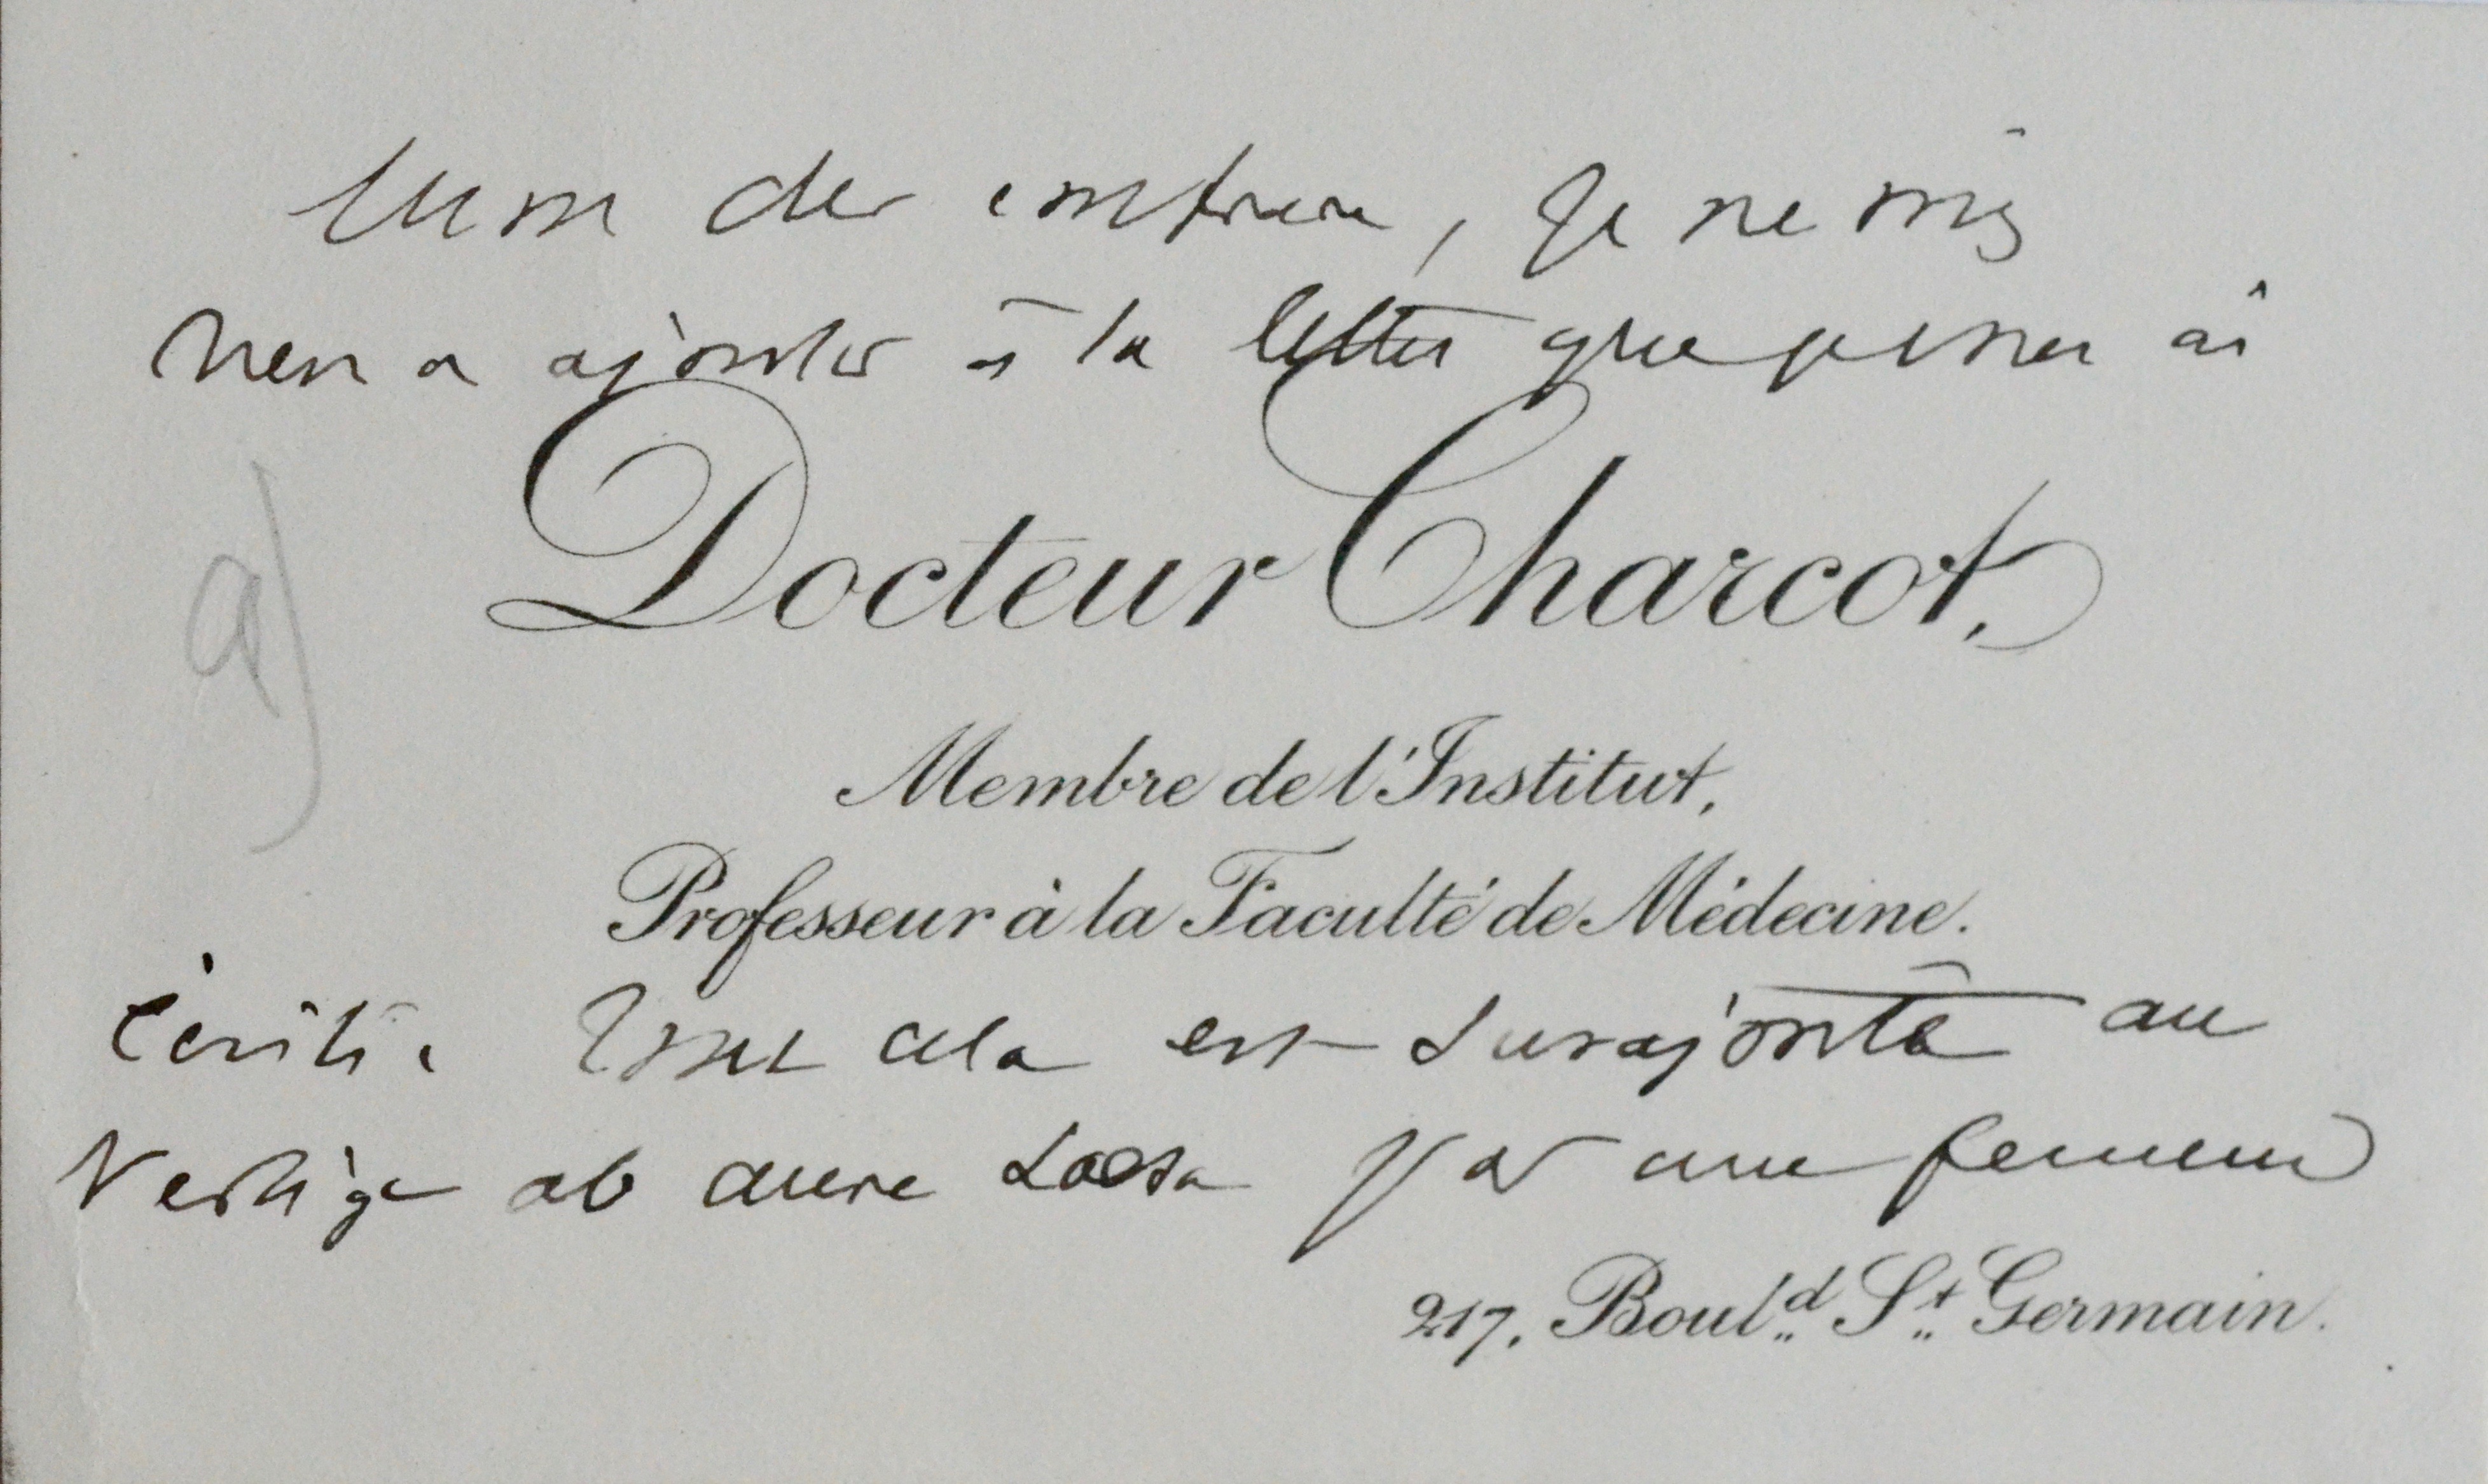 Mon cher confrere, Je ne vois
rien a ajouter à la lettre que je vous ai
a)
Docteur Charcot,
Membre de l'Institut,
Professeur à la Faculté de Médecine.
écrite. Tout cela est surajouté au
Vertige ab aure laesa une
217, Boul.d S.t Germain.